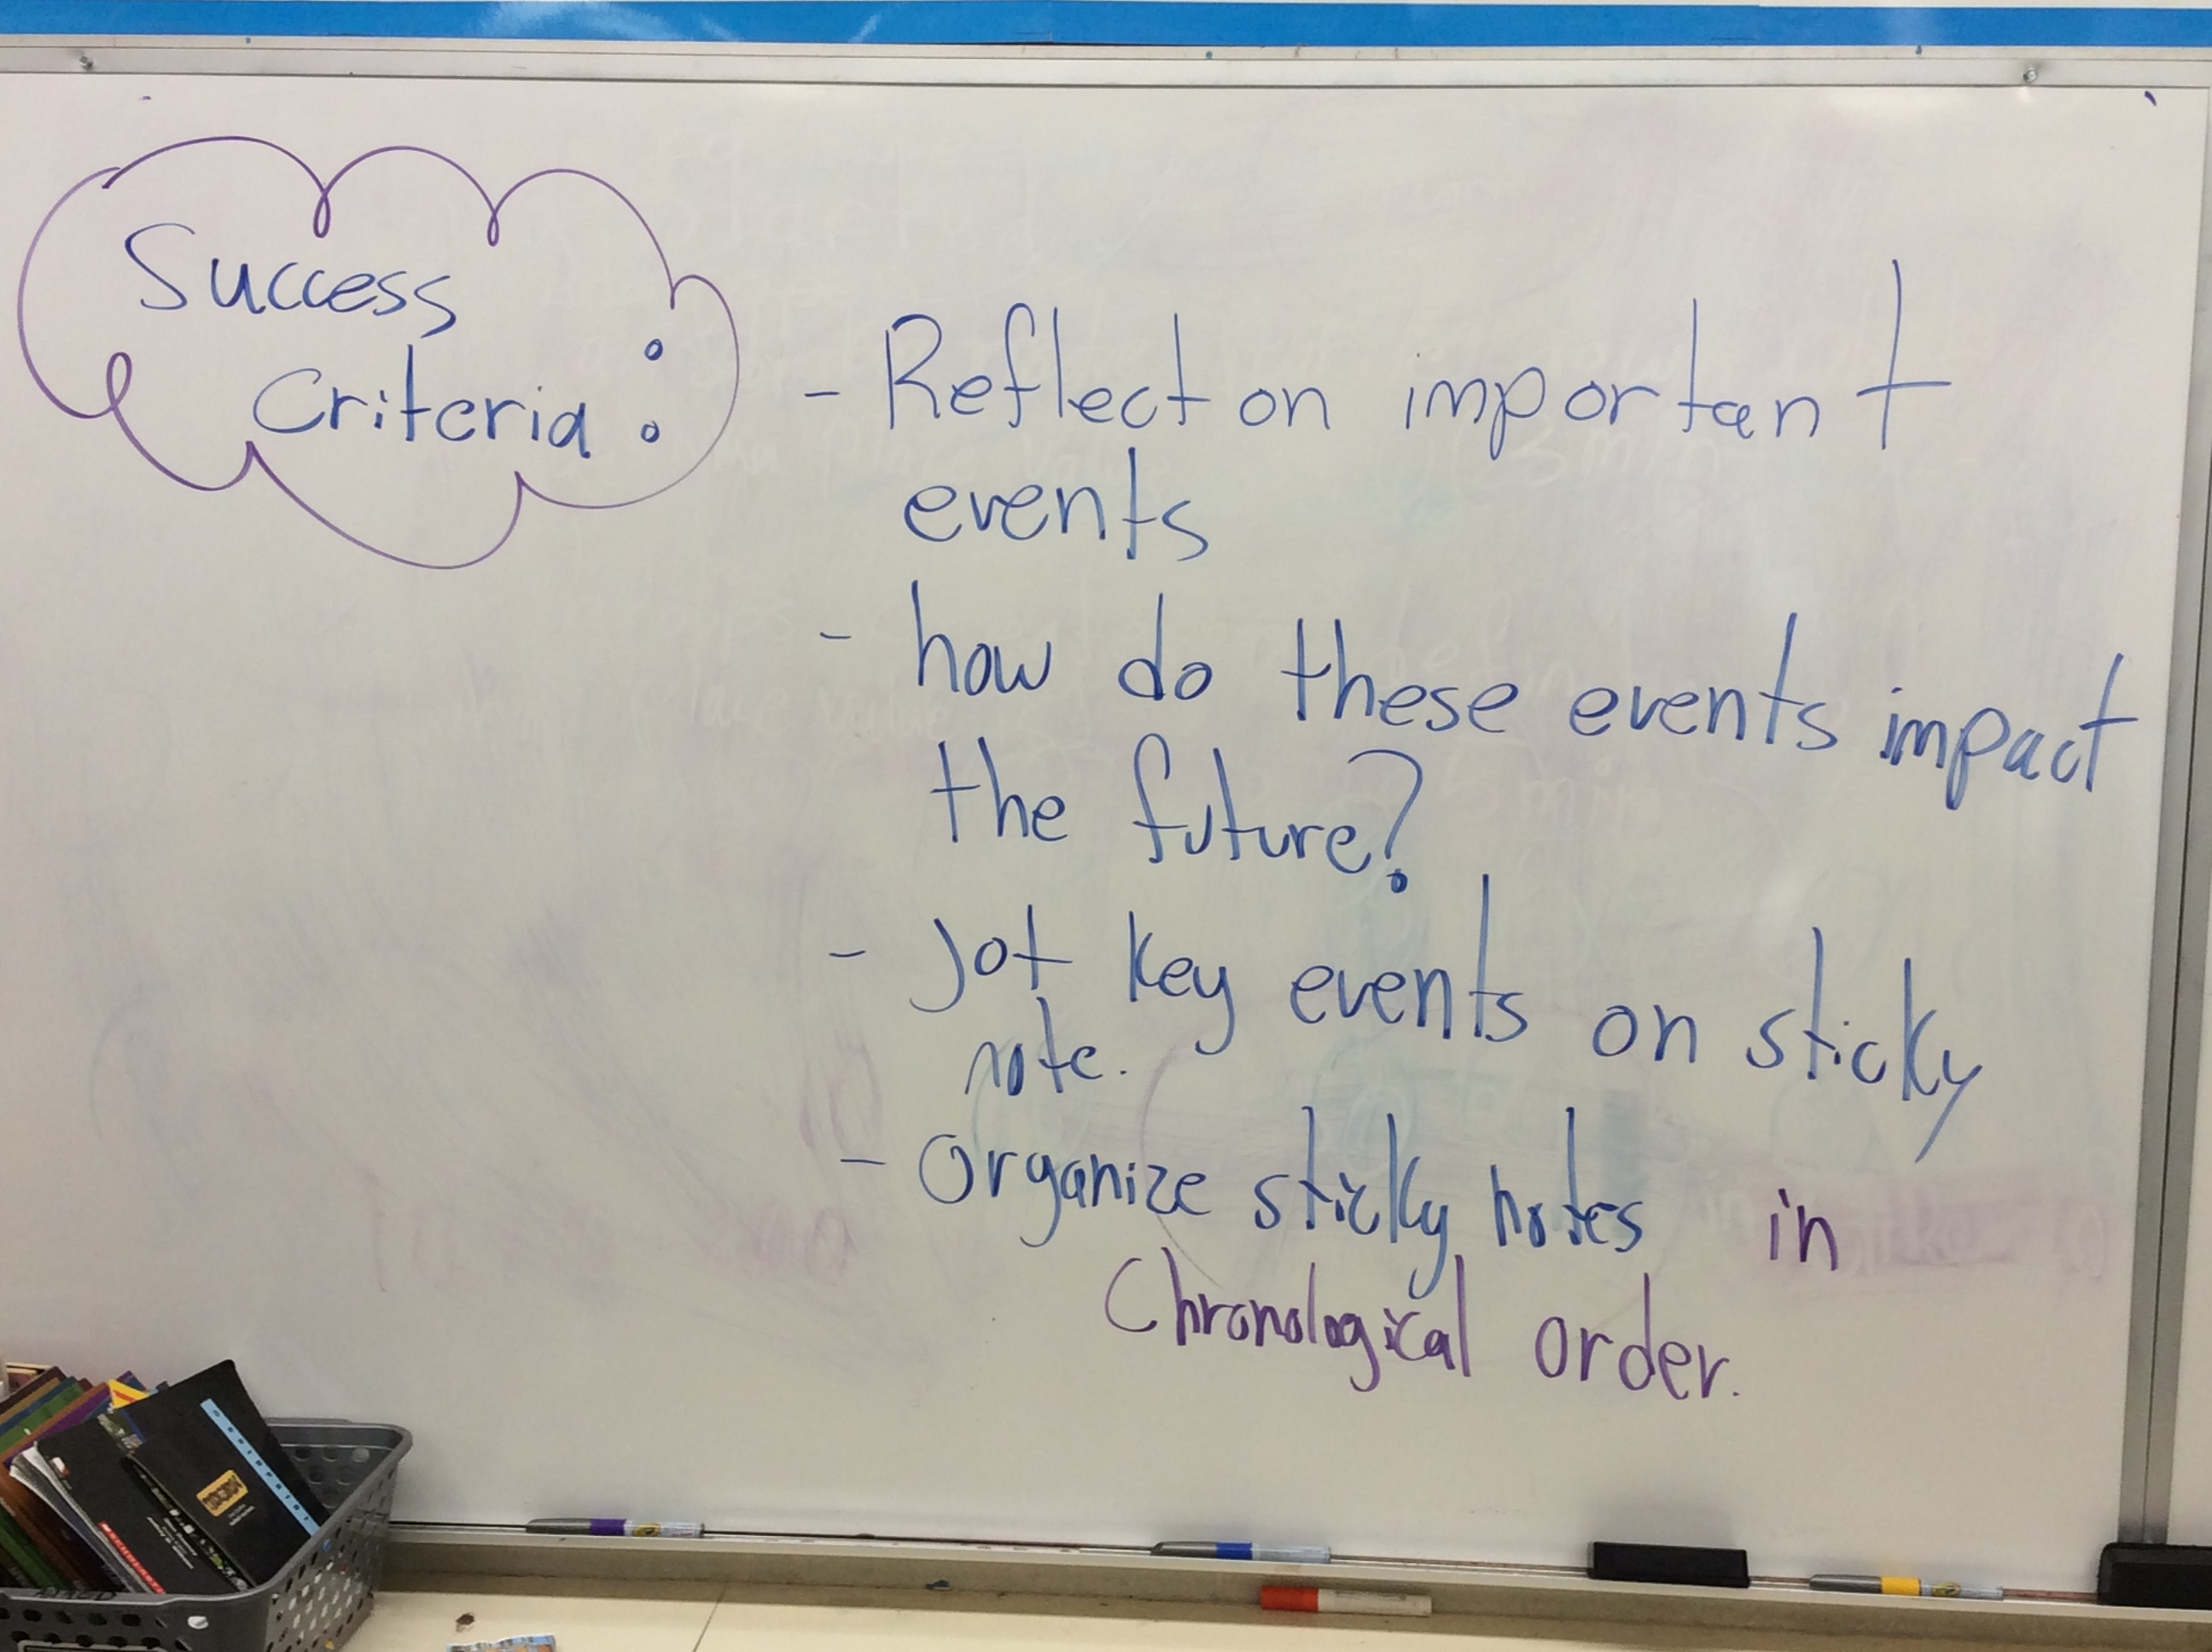 Success
Criteria:
- Reflect on important
events
- how do these events impact
the future?
- Jot key events on sticky
note.
- Organize sticky notes in
Chronological order.